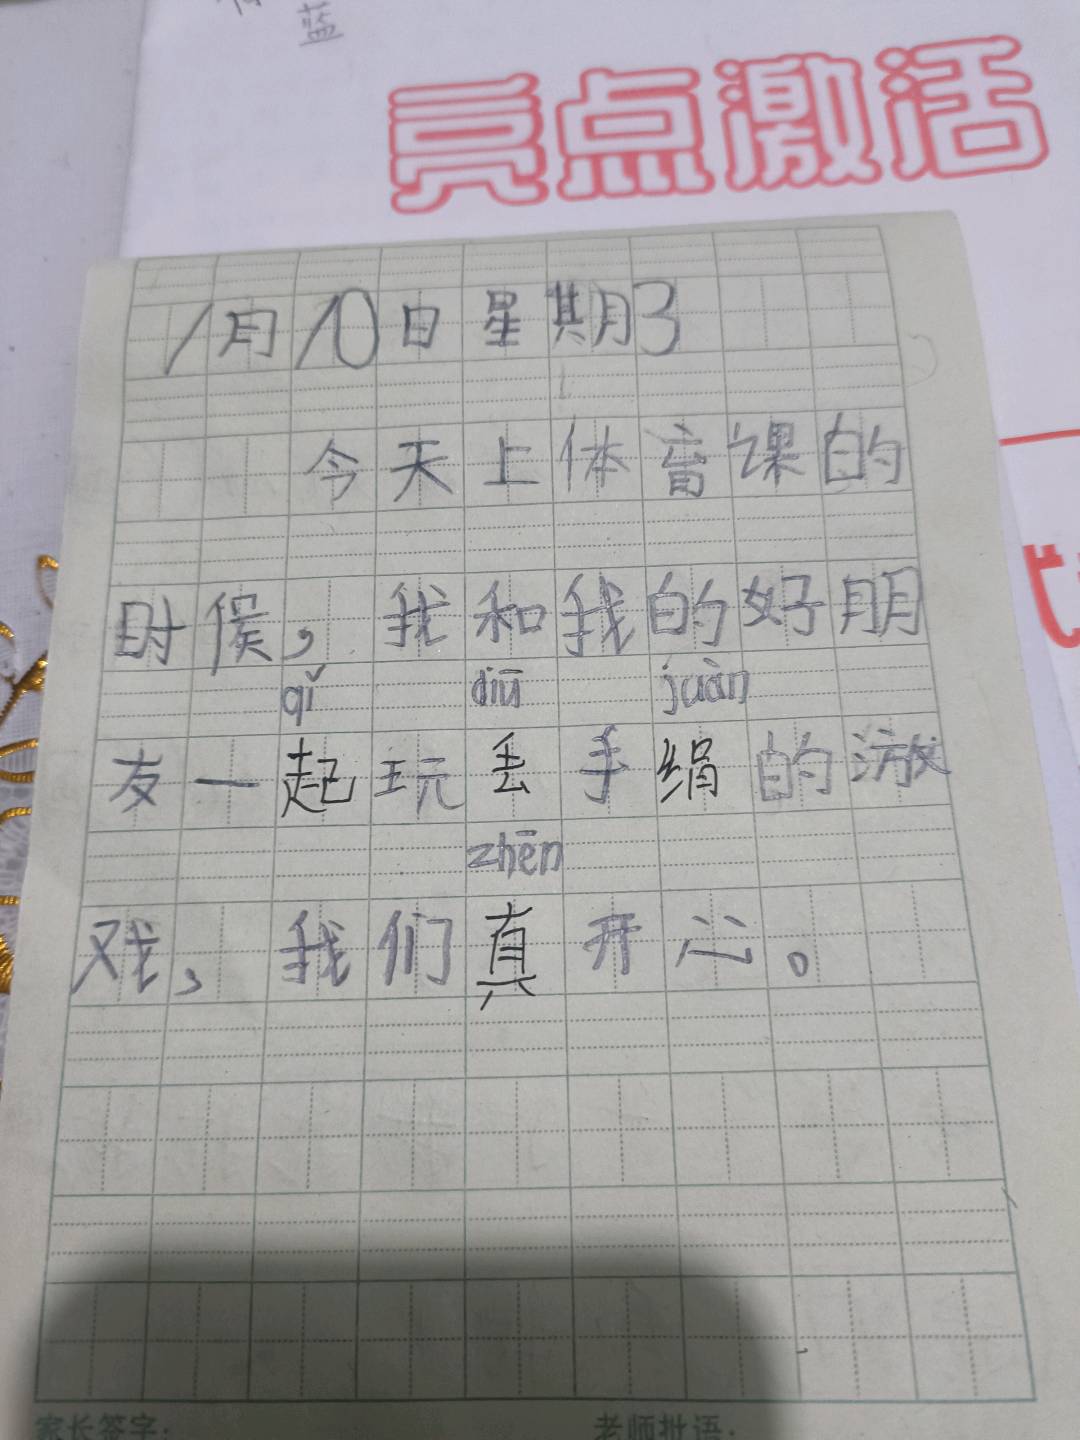 蓝
亮点激活
1月10日星期3
今天上体育课的
时候，我和我的好朋
qǐ diū juàn
友一起玩丢手绢的游
zhēn
戏，我们真开心。
家长签字：
老师批语：